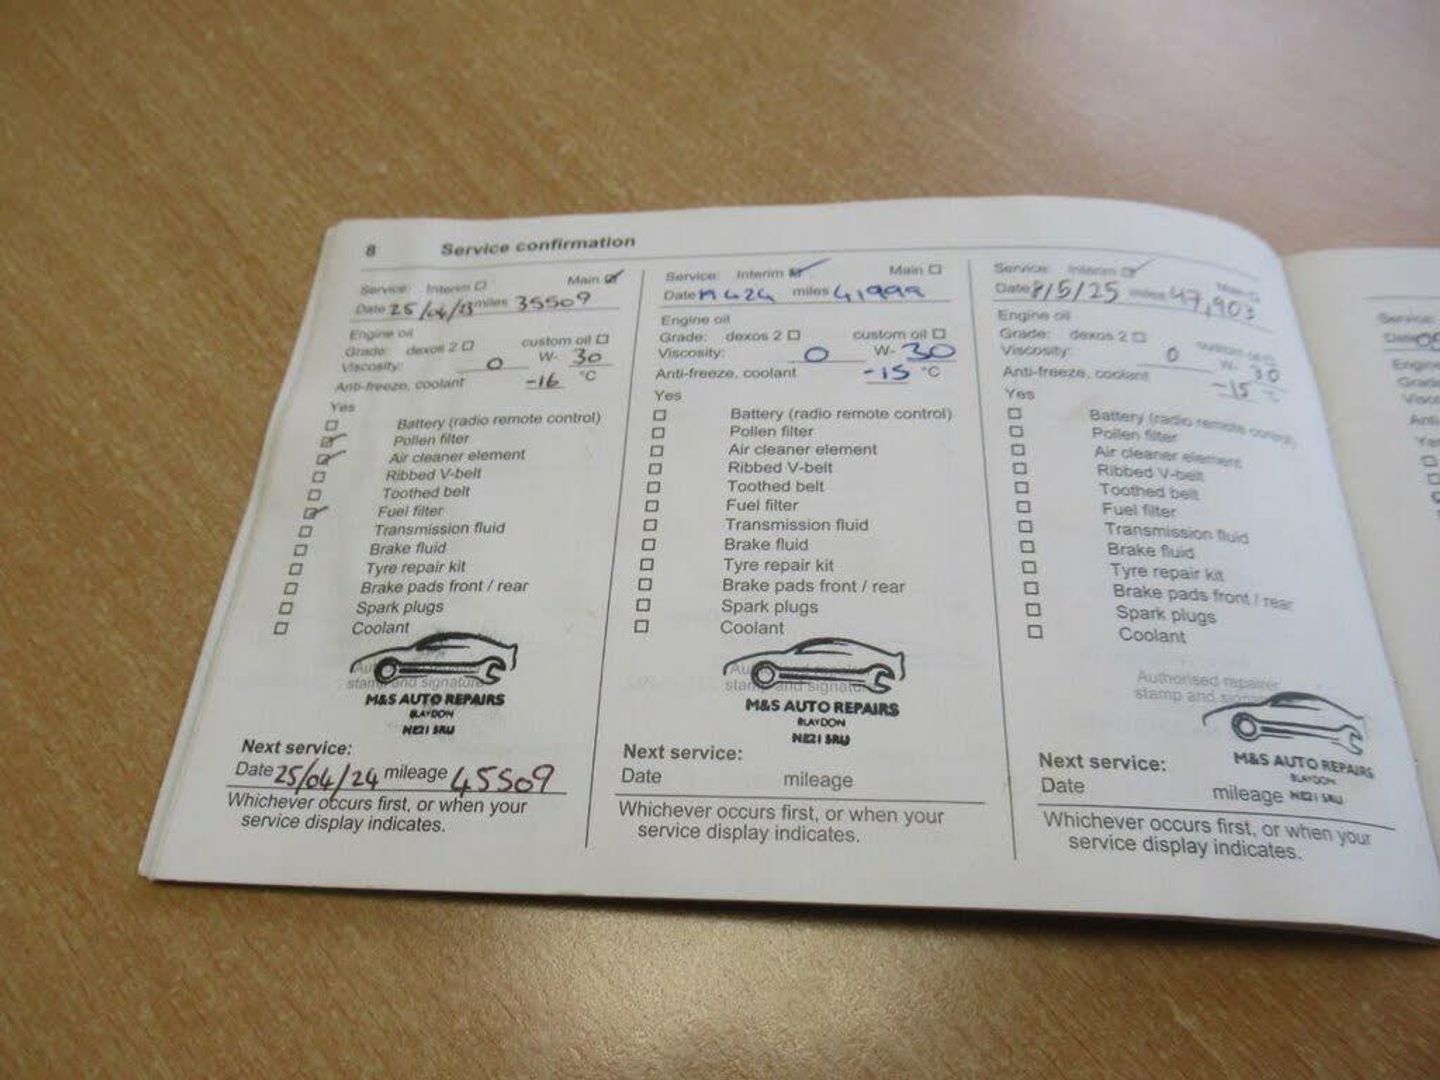 8 Service confirmation
Service: Interim Main
Date 25/04/23 miles 35509
Engine oil
Grade: dexos 2 custom oil
Viscosity: 0 W- 30
Anti-freeze, coolant -16 °C
Yes
Battery (radio remote control)
Pollen filter
Air cleaner element
Ribbed V-belt
Toothed belt
Fuel filter
Transmission fluid
Brake fluid
Tyre repair kit
Brake pads front / rear
Spark plugs
Coolant
stamp and signature
M&S AUTO REPAIRS
BLAYDON
NE21 5RU
Next service:
Date 25/04/24 mileage 45509
Whichever occurs first, or when your
service display indicates.
Service: Interim Main
Date 19 4 24 miles 41,999
Engine oil
Grade: dexos 2 custom oil
Viscosity: 0 W- 30
Anti-freeze, coolant -15 °C
Yes
Battery (radio remote control)
Pollen filter
Air cleaner element
Ribbed V-belt
Toothed belt
Fuel filter
Transmission fluid
Brake fluid
Tyre repair kit
Brake pads front / rear
Spark plugs
Coolant
stamp and signature
M&S AUTO REPAIRS
BLAYDON
NE21 5RU
Next service:
Date mileage
Whichever occurs first, or when your
service display indicates.
Service: Interim Main
Date 8/5/25 miles 47,903
Engine oil
Grade: dexos 2 custom oil
Viscosity: 0 W- 30
Anti-freeze, coolant -15 °C
Yes
Battery (radio remote control)
Pollen filter
Air cleaner element
Ribbed V-belt
Toothed belt
Fuel filter
Transmission fluid
Brake fluid
Tyre repair kit
Brake pads front / rear
Spark plugs
Coolant
Authorised repairer
stamp and signature
M&S AUTO REPAIRS
BLAYDON
NE21 5RU
Next service:
Date mileage
Whichever occurs first, or when your
service display indicates.